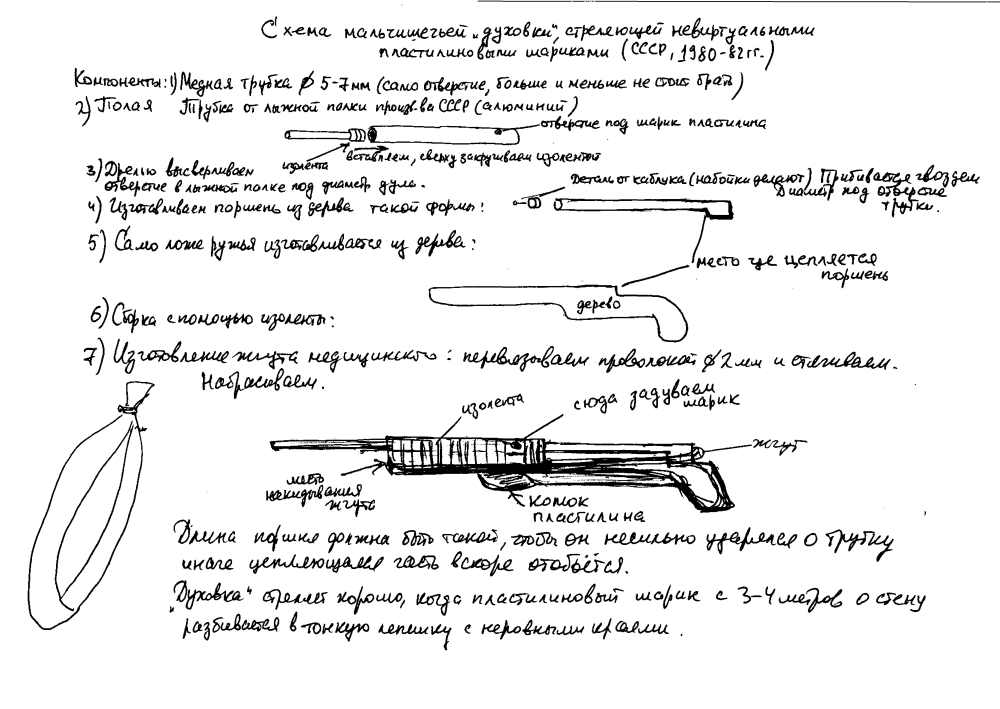 Схема мальчишечьей „духовки", стреляющей невиртуальными
пластилиновыми шариками (СССР, 1980-82 гг.)
Компоненты: 1) Медная трубка ϕ 5-7 мм (само отверстие, больше и меньше не стоит брать)
2) Полая Трубка от лыжной палки произв-ва СССР (алюминий)
отверстие под шарик пластилина
изолента
вставляем, сверху закручиваем изолентой
3) Дрелью высверливаем
отверстие в лыжной палке под диаметр дула.
Деталь от каблука (набойки делают) Прибивается гвоздем
Диаметр под отверстие
трубки.
4) Изготавливаем поршень из дерева такой формы:
5) Само ложе ружья изготавливается из дерева:
место где цепляется
поршень
дерево
6) Сборка с помощью изоленты:
7) Изготовление жгута медицинского: перевязываем проволокой ϕ 2 мм и стягиваем.
Набрасываем.
изолента
сюда задуваем
шарик
жгут
место
накидывания
жгута
комок
пластилина
Длина поршня должна быть такой, чтобы он несильно ударялся о трубку
иначе цепляющаяся часть вскоре отобьётся.
„Духовка" стреляет хорошо, когда пластилиновый шарик с 3-4 метров о стену
разбивается в тонкую лепешку с неровными краями.